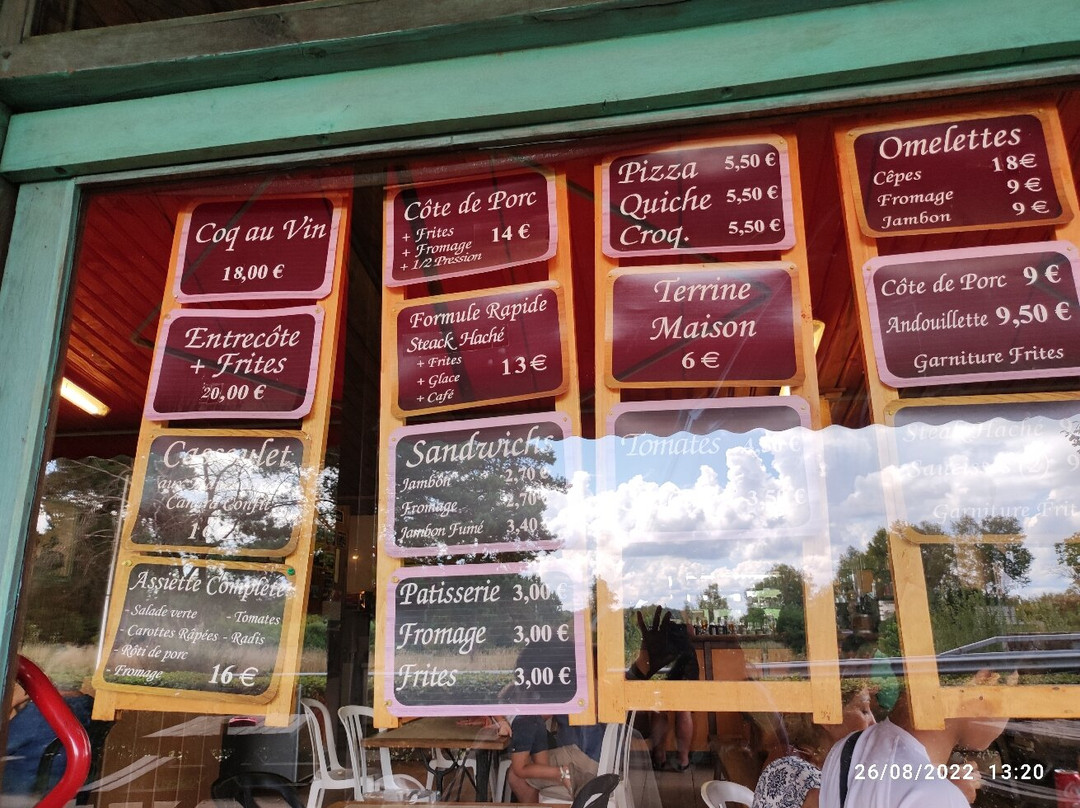 Coq au Vin
18,00 €
Entrecôte
+ Frites
20,00 €
Cassoulet
Canard Confit
Assiette Complète
- Salade verte - Tomates
- Carottes Râpées - Radis
- Rôti de porc
- Fromage 16 €
Côte de Porc
+ Frites
+ Fromage 14 €
+ 1/2 Pression
Formule Rapide
Steack Haché
+ Frites
+ Glace 13 €
+ Café
Sandwichs
Jambon 2,70 €
Fromage 2,70 €
Jambon Fumé 3,40 €
Patisserie 3,00 €
Fromage 3,00 €
Frites 3,00 €
Pizza 5,50 €
Quiche 5,50 €
Croq. 5,50 €
Terrine
Maison
6 €
Tomates
3,50 €
Omelettes
Cêpes 18 €
Fromage 9 €
Jambon 9 €
Côte de Porc 9 €
Andouillette 9,50 €
Garniture Frites
Steak Haché
Garniture Frit
26/08/2022 13:20